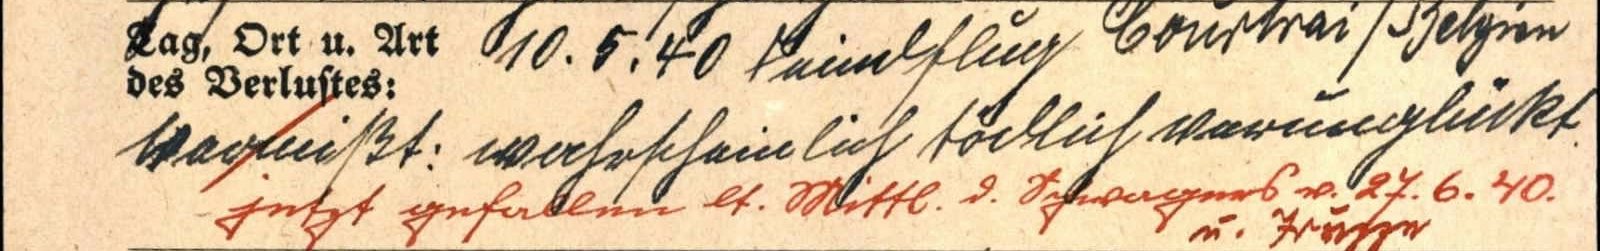 Tag, Ort u. Art 10.5.40 Feindflug Courtrai / Belgien
des Verlustes:
Vermißt: wahrscheinlich tödlich verunglückt.
jetzt gefallen lt. Mittl. d. Schwagers v. 27.6.40.
u. Truppe